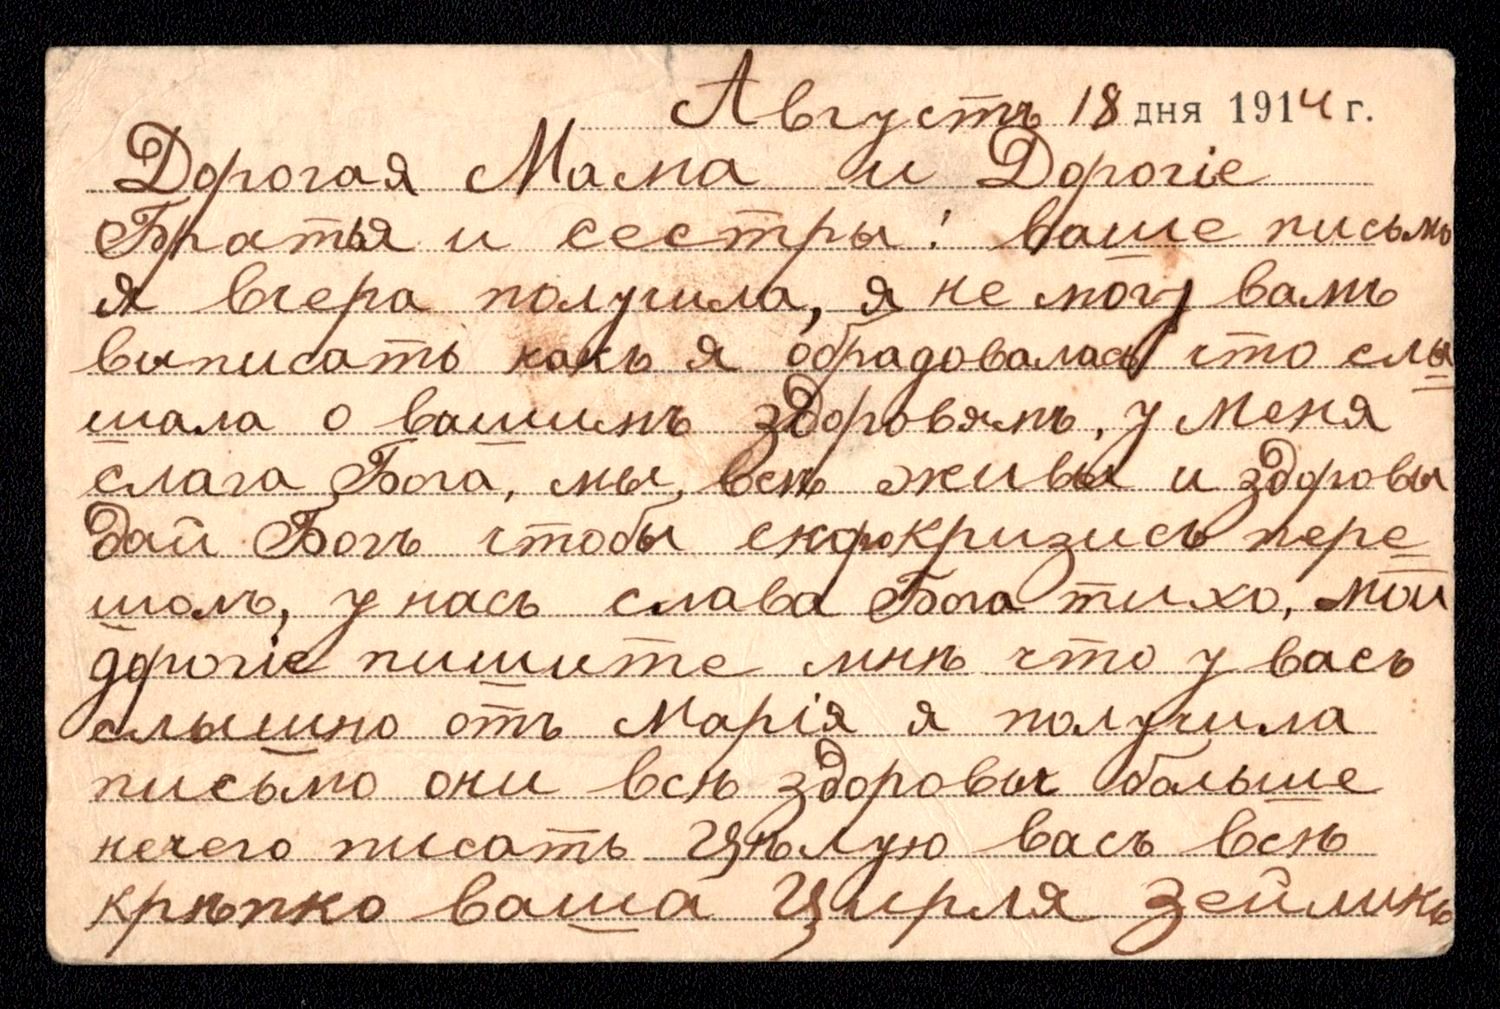 Августъ 18 дня 1914 г.
Дорогая Мама и Дорогіе
Братья и сестры! ваше письмо
я вчера получила, я не могу вамъ
выписать какъ я обрадовалась что слы
шала о вашимъ здоровямъ, у меня
слага Бога, мы, всѣ живы и здоровы
дай Богъ чтобы скорокризисъ пере
шолъ, у насъ слава Бога тихо, мои
дорогіе пишите мнѣ что у васъ
слышно отъ Марія я получила
письмо они всѣ здоровы больше
нечего писать Цѣлую васъ всѣ
крѣпко ваша Цирля Зейликъ